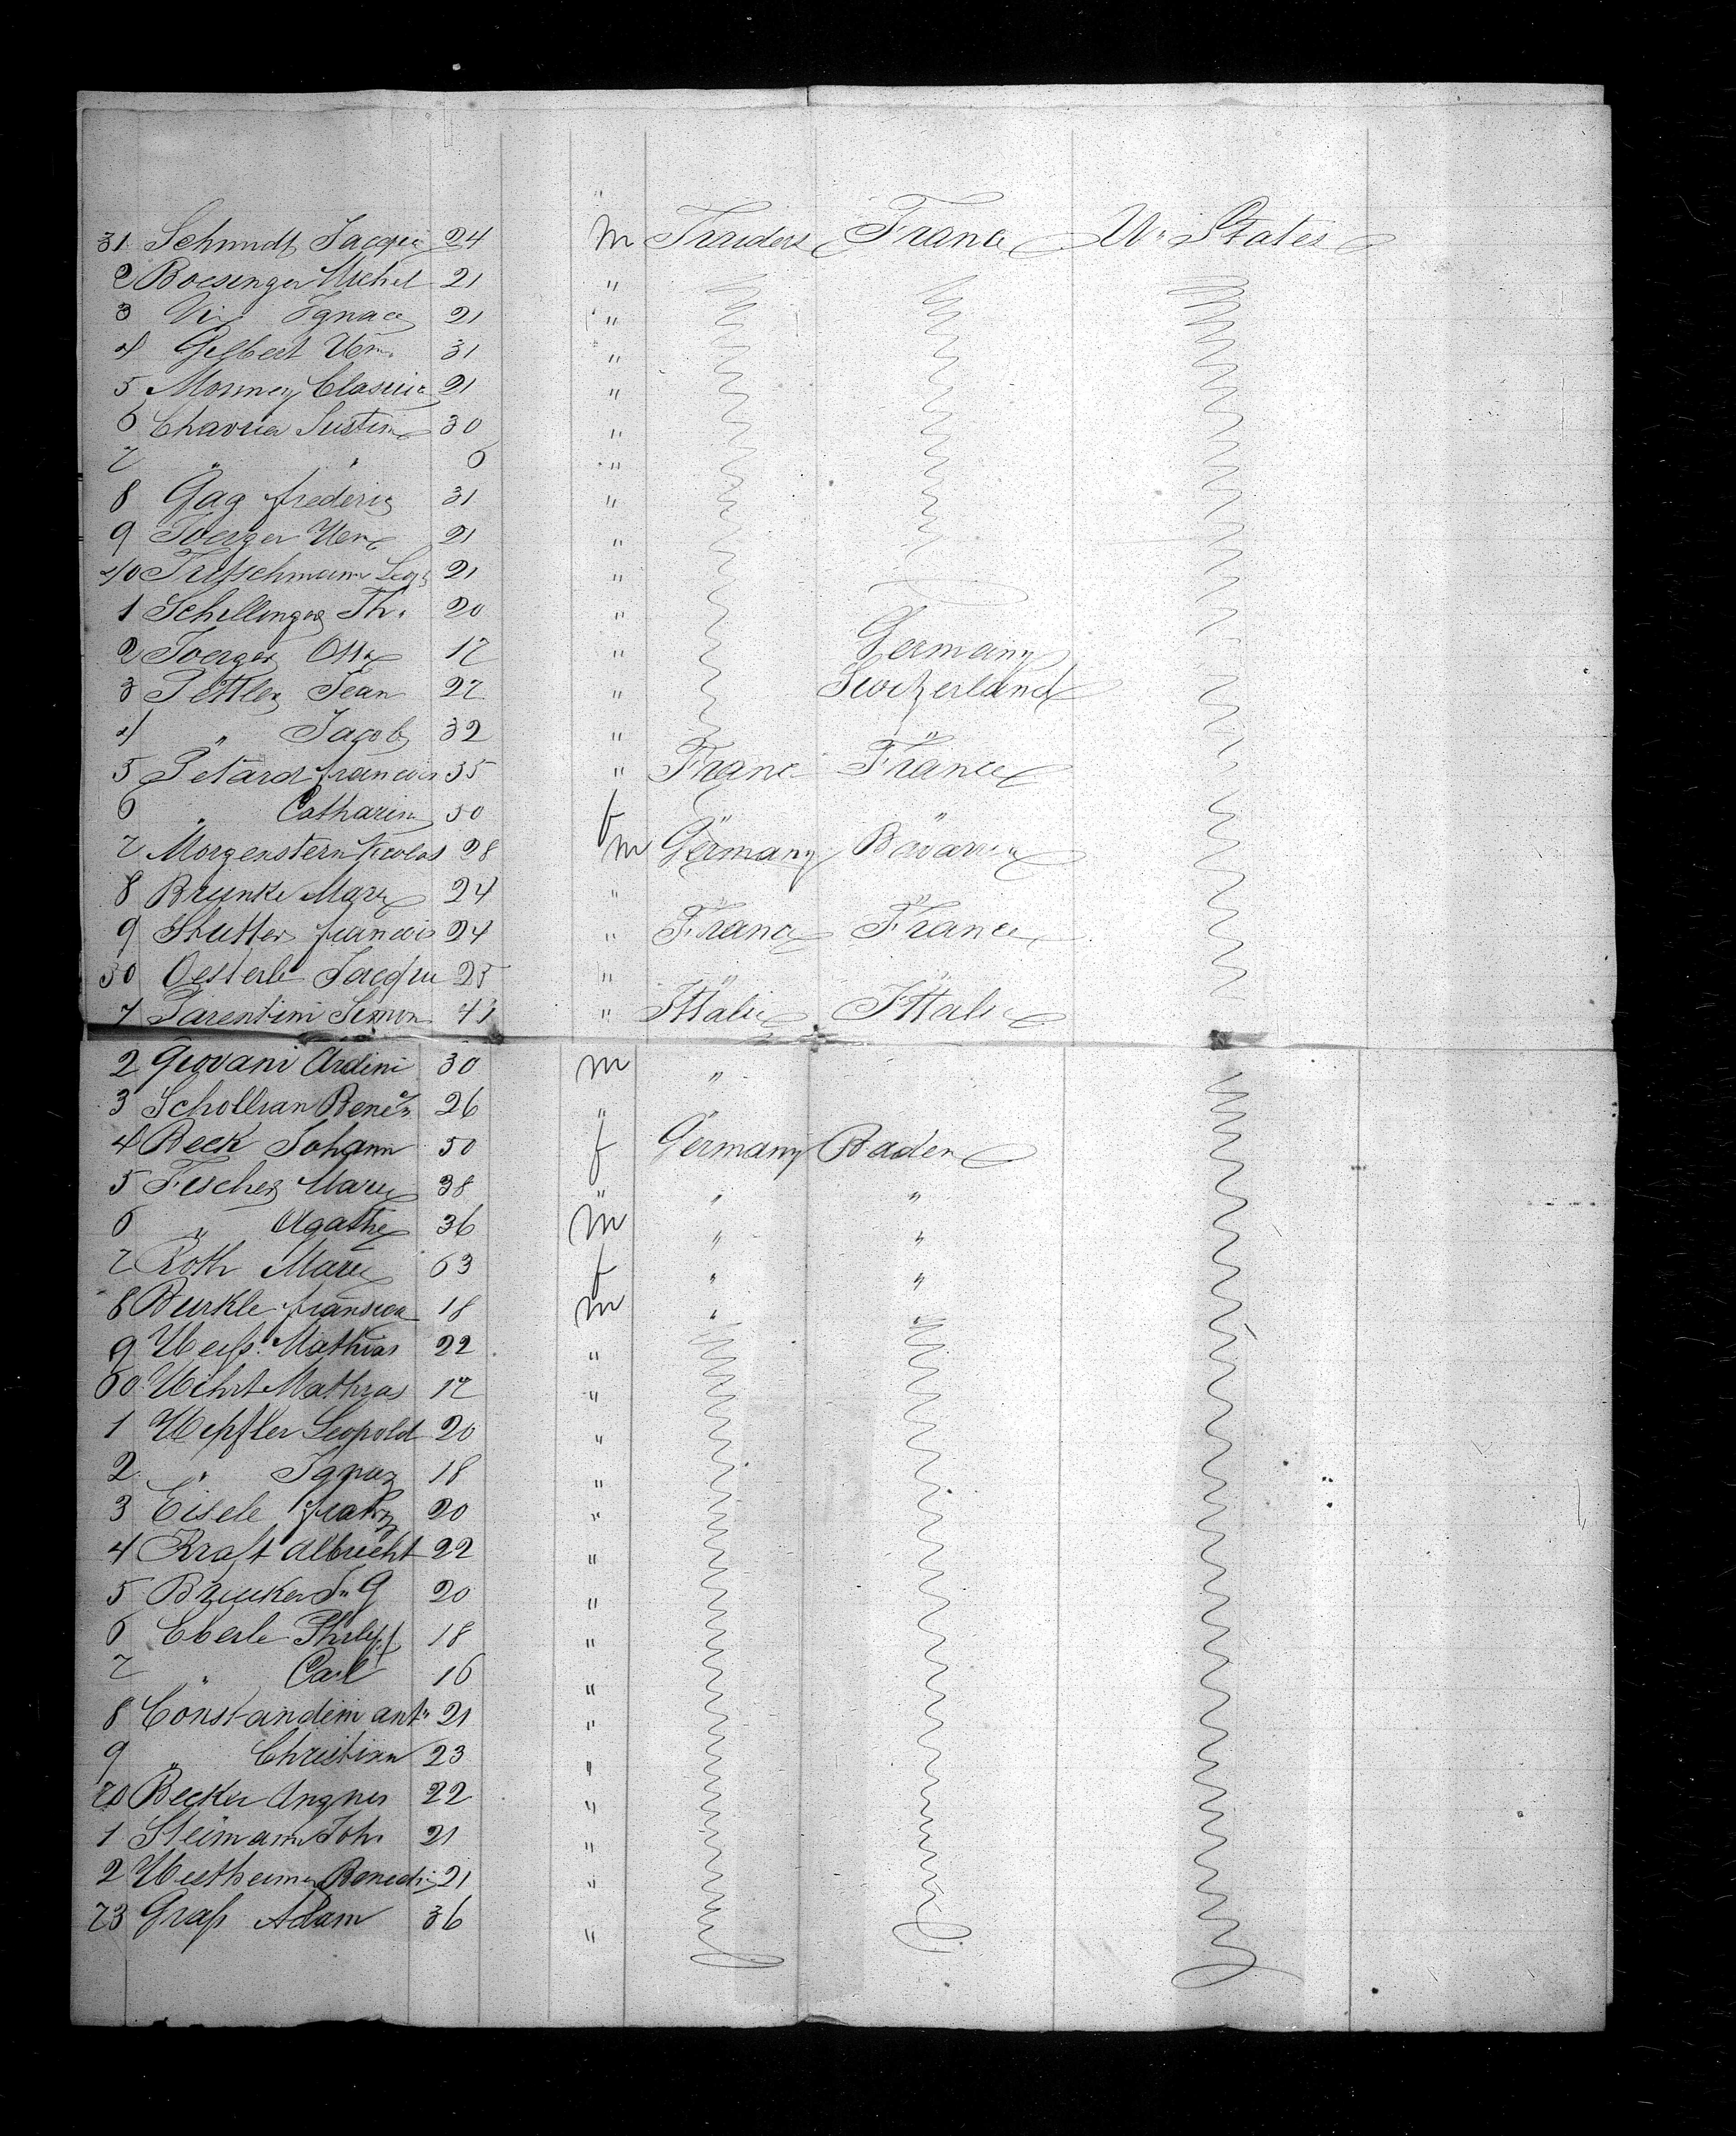 31 Schmidt Jacque 24 m Traiders France U. States
2 Boesinger Michel 21 "
3 Vix Ignace 21 "
4 Gilbert Wm. 31 "
5 Monney 21 "
6 Chavria Justine 30 "
7 " " 6 "
8 Gag frederic 31 "
9 Joerger Wm 21 "
40 Fritschmann 21 "
1 Schillinger Th. 20 "
2 Joerger Otto 17 " Germany
3 Pettler Jean 27 " Switzerland
4 " Jacob 32 " "
5 Petard francois 35 " Franc France
6 " Catharin 50 f " "
7 Morgenstern Nicolas 28 m Germany Bavaria
8 Brunke Marx 24 " "
9 Stutter francois 24 " Franc France
50 Oesterle Jacque 25 " " "
1 Parentini Simon 41 " Ittalie Ittalie
2 Giovani Ardini 30 m "
3 Schollian 26 " "
4 Beck Johann 50 f Germany Baden
5 Fischer Marie 38 " " "
6 " Agathe 36 m " "
7 Roth Marie 63 f " "
8 Burkle fransica 18 m " "
9 Weiß Mathias 22 "
60 Wihrt Mathias 17 "
1 Wepfler Leopold 20 "
2 " Ignaz 18 "
3 Eisele franz 20 "
4 Kraft Albrecht 22 "
5 Brucker G 20 "
6 Eberle Philipp 18 "
7 " Carl 16 "
8 Constandin antn 21 "
9 " Christian 23 "
70 Becker Angnes 22 "
1 Steimann Joh. 21 "
2 Westheimer Benedic 21 "
73 Graß Adam 36 "